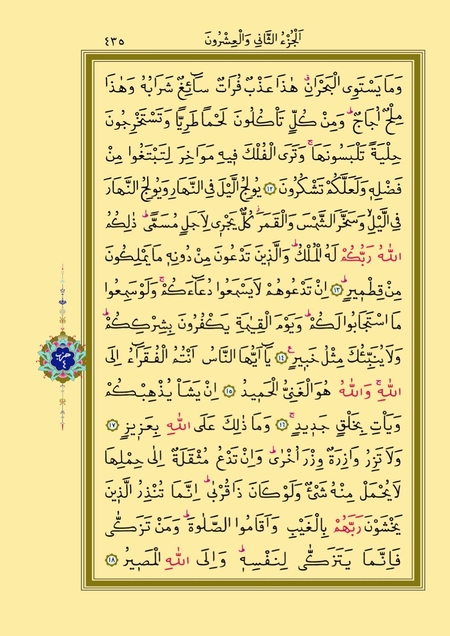 اَلْجُزْءُ الثَّانِي وَالْعِشْرُونَ ٤٣٥
وَمَا يَسْتَوِي الْبَحْرَانِۗ هٰذَا عَذْبٌ فُرَاتٌ سَٓائِغٌ شَرَابُهُ وَهٰذَا
مِلْحٌ اُجَاجٌۜ وَمِنْ كُلٍّ تَأْكُلُونَ لَحْمًا طَرِيًّا وَتَسْتَخْرِجُونَ
حِلْيَةً تَلْبَسُونَهَاۚ وَتَرَى الْفُلْكَ فِيهِ مَوَاخِرَ لِتَبْتَغُوا مِنْ
فَضْلِهِ وَلَعَلَّكُمْ تَشْكُرُونَ ١٢ يُولِجُ الَّيْلَ فِي النَّهَارِ وَيُولِجُ النَّهَارَ
فِي الَّيْلِۙ وَسَخَّرَ الشَّمْسَ وَالْقَمَرَۘ كُلٌّ يَجْرِي لِاَجَلٍ مُسَمًّىۜ ذٰلِكُمُ
اللّٰهُ رَبُّكُمْ لَهُ الْمُلْكُۜ وَالَّذِينَ تَدْعُونَ مِنْ دُونِهِ مَا يَمْلِكُونَ
مِنْ قِطْمِيرٍۜ ١٣ اِنْ تَدْعُوهُمْ لَا يَسْمَعُوا دُعَٓاءَكُمْۚ وَلَوْ سَمِعُوا
مَا اسْتَجَابُوا لَكُمْۜ وَيَوْمَ الْقِيٰمَةِ يَكْفُرُونَ بِشِرْكِكُمْۜ
وَلَا يُنَبِّئُكَ مِثْلُ خَبِيرٍ۟ ١٤ يَٓا اَيُّهَا النَّاسُ اَنْتُمُ الْفُقَرَٓاءُ اِلَى
اللّٰهِۚ وَاللّٰهُ هُوَ الْغَنِيُّ الْحَمِيدُ ١٥ اِنْ يَشَأْ يُذْهِبْكُمْ
وَيَأْتِ بِخَلْقٍ جَدِيدٍۚ ١٦ وَمَا ذٰلِكَ عَلَى اللّٰهِ بِعَزِيزٍ ١٧
وَلَا تَزِرُ وَازِرَةٌ وِزْرَ اُخْرٰىۜ وَاِنْ تَدْعُ مُثْقَلَةٌ اِلٰى حِمْلِهَا
لَا يُحْمَلْ مِنْهُ شَيْءٌ وَلَوْ كَانَ ذَا قُرْبٰىۜ اِنَّمَا تُنْذِرُ الَّذِينَ
يَخْشَوْنَ رَبَّهُمْ بِالْغَيْبِ وَاَقَامُوا الصَّلٰوةَۜ وَمَنْ تَزَكّٰى
فَاِنَّمَا يَتَزَكّٰى لِنَفْسِهِۜ وَاِلَى اللّٰهِ الْمَصِيرُ ١٨
حزب
٤